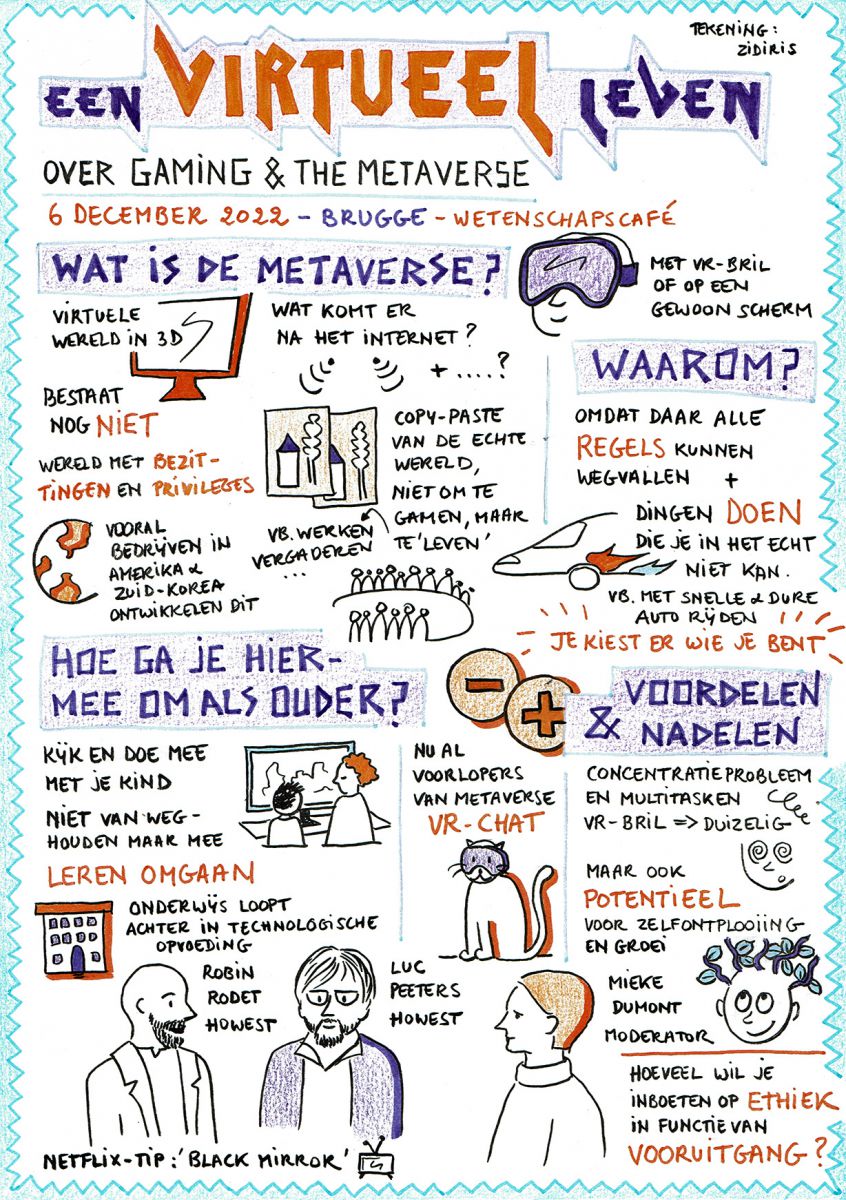 TEKENING:
ZIDIRIS
EEN VIRTUEEL LEVEN
OVER GAMING & THE METAVERSE
6 DECEMBER 2022 - BRUGGE - WETENSCHAPSCAFÉ
WAT IS DE METAVERSE?
VIRTUELE
WERELD IN 3D
WAT KOMT ER
NA HET INTERNET?
+ ....?
MET VR-BRIL
OF OP EEN
GEWOON SCHERM
BESTAAT
NOG NIET
WERELD MET BEZIT-
TINGEN EN PRIVILEGES
VOORAL
BEDRIJVEN IN
AMERIKA &
ZUID-KOREA
ONTWIKKELEN DIT
COPY-PASTE
VAN DE ECHTE
WERELD,
NIET OM TE
GAMEN, MAAR
TE 'LEVEN'
VB. WERKEN
VERGADEREN
...
WAAROM?
OMDAT DAAR ALLE
REGELS KUNNEN
WEGVALLEN +
DINGEN DOEN
DIE JE IN HET ECHT
NIET KAN.
VB. MET SNELLE & DURE
AUTO RIJDEN
JE KIEST ER WIE JE BENT
HOE GA JE HIER-
MEE OM ALS OUDER?
KIJK EN DOE MEE
MET JE KIND
NIET VAN WEG-
HOUDEN MAAR MEE
LEREN OMGAAN
ONDERWIJS LOOPT
ACHTER IN TECHNOLOGISCHE
OPVOEDING
NU AL
VOORLOPERS
VAN METAVERSE
VR-CHAT
- +
VOORDELEN
& NADELEN
CONCENTRATIEPROBLEEM
EN MULTITASKEN
VR-BRIL => DUIZELIG
MAAR OOK
POTENTIEEL
VOOR ZELFONTPLOOIING
EN GROEI
ROBIN
RODET
HOWEST
LUC
PEETERS
HOWEST
MIEKE
DUMONT
MODERATOR
HOEVEEL WIL JE
INBOETEN OP ETHIEK
IN FUNCTIE VAN
VOORUITGANG?
NETFLIX-TIP: 'BLACK MIRROR'